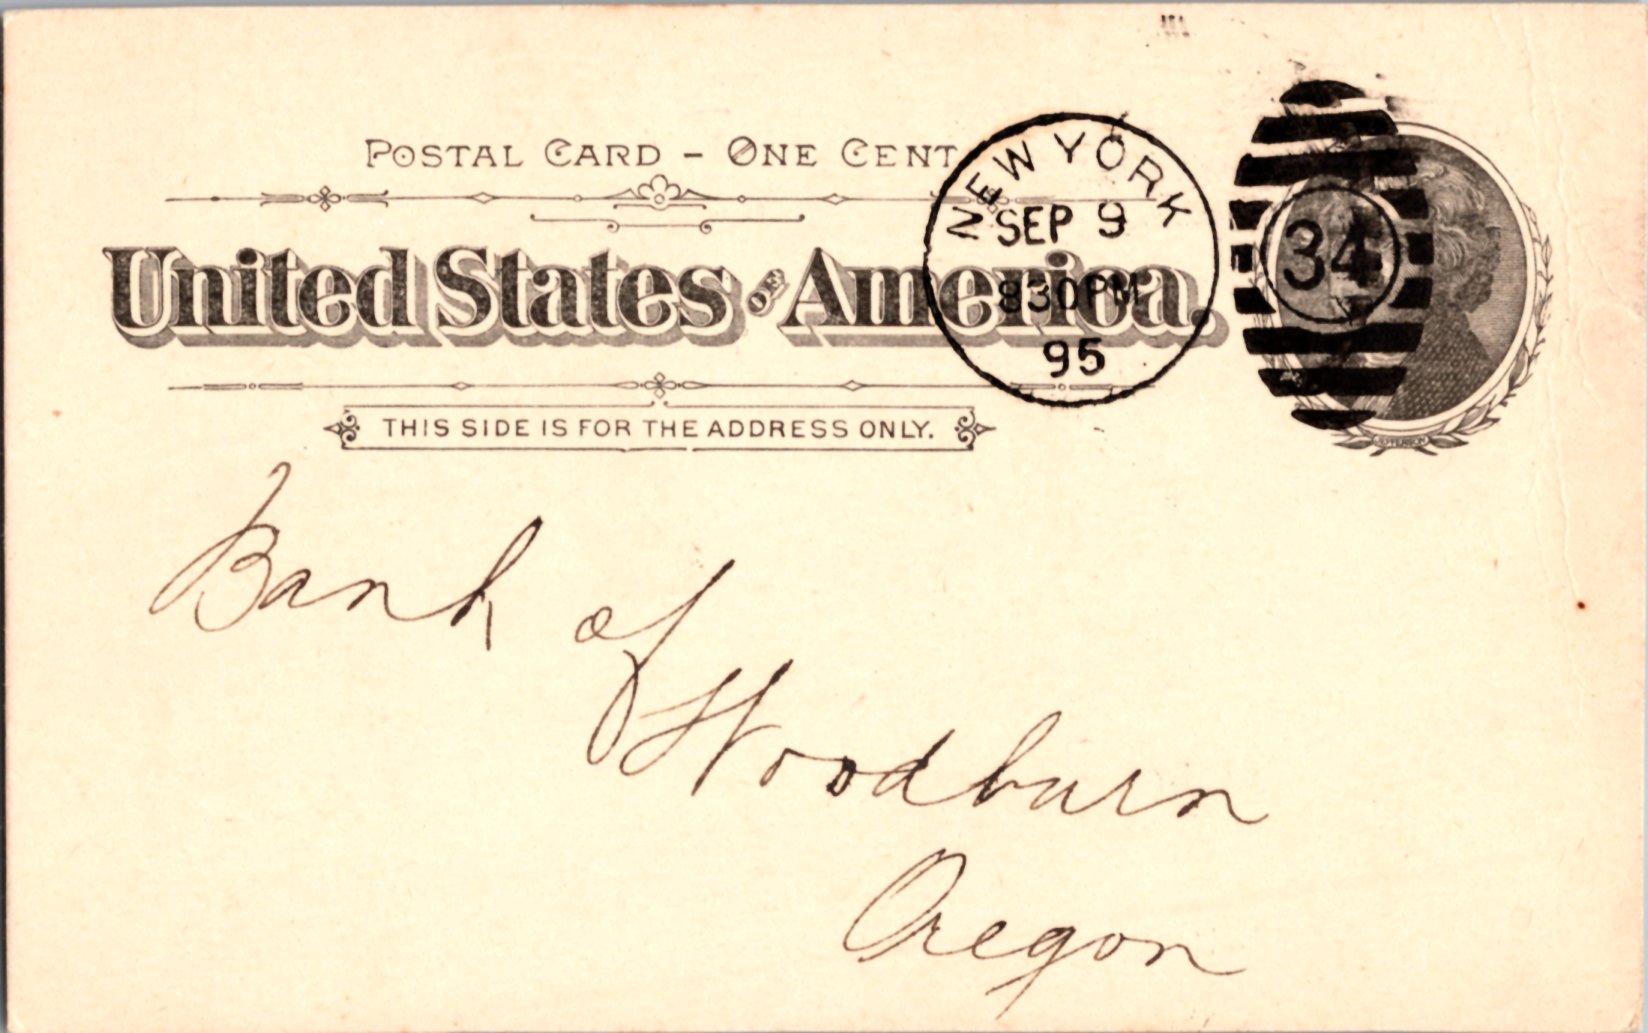 POSTAL CARD – ONE CENT
United States OF America.
THIS SIDE IS FOR THE ADDRESS ONLY.
NEW YORK
SEP 9
830PM
95
34
JEFFERSON
Bank of
Woodburn
Oregon